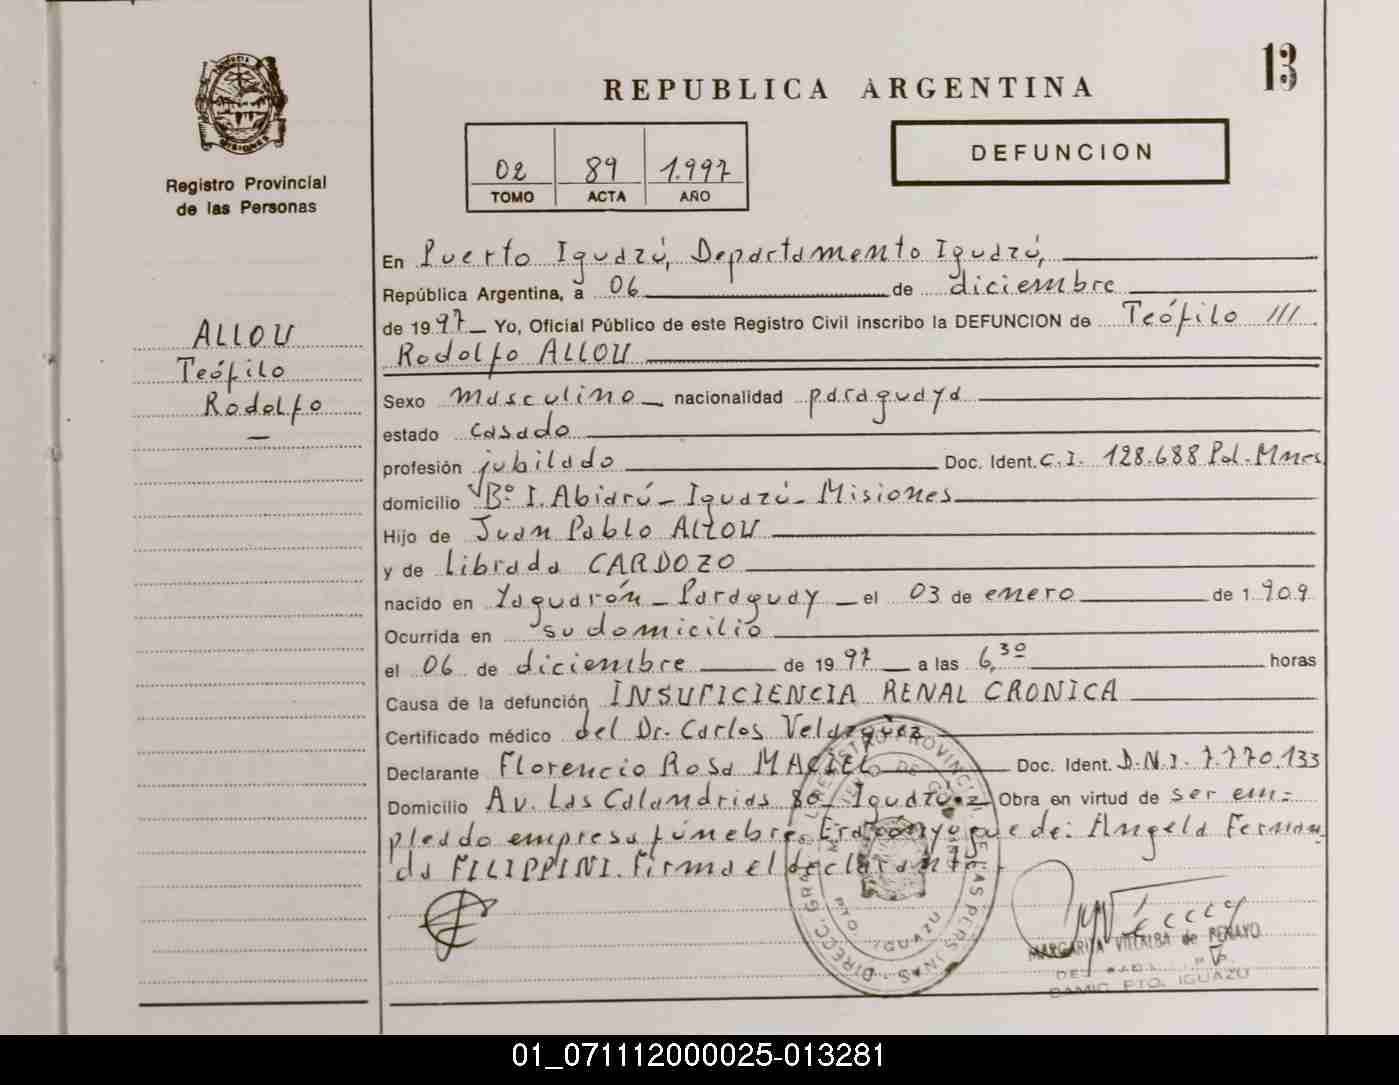 13
REPUBLICA ARGENTINA
DEFUNCION
02 89 1.997
TOMO ACTA AÑO
MISIONES
Registro Provincial
de las Personas
ALLOU
Teófilo
Rodolfo
En Puerto Iguazú, Departamento Iguazú,
República Argentina, a 06 de diciembre
de 1997 Yo, Oficial Público de este Registro Civil inscribo la DEFUNCION de Teófilo ///
Rodolfo ALLOU
Sexo masculino nacionalidad paraguaya
estado casado
profesión jubilado Doc. Ident. C.I. 128.688 Pol. Mnes
domicilio Bº I. Abiarú - Iguazú - Misiones
Hijo de Juan Pablo ALLOU
y de Librada CARDOZO
nacido en Yaguarón - Paraguay - el 03 de enero de 1.909
Ocurrida en su domicilio
el 06 de diciembre de 1997 a las 6,30 horas
Causa de la defunción INSUFICIENCIA RENAL CRONICA
Certificado médico del Dr. Carlos Velazquez
Declarante Florencio Rosa MACIEL Doc. Ident. D.N.I. 7.770.133
Domicilio Av. Las Calandrias 80 Iguazú Obra en virtud de ser em=
pleado empresa fúnebre. Era cónyugue de: Angela Fernan
da FILIPPINI. Firma el declarante.
MARGARITA VILLALBA de PENAYO
PTO. IGUAZU
01_071112000025-013281